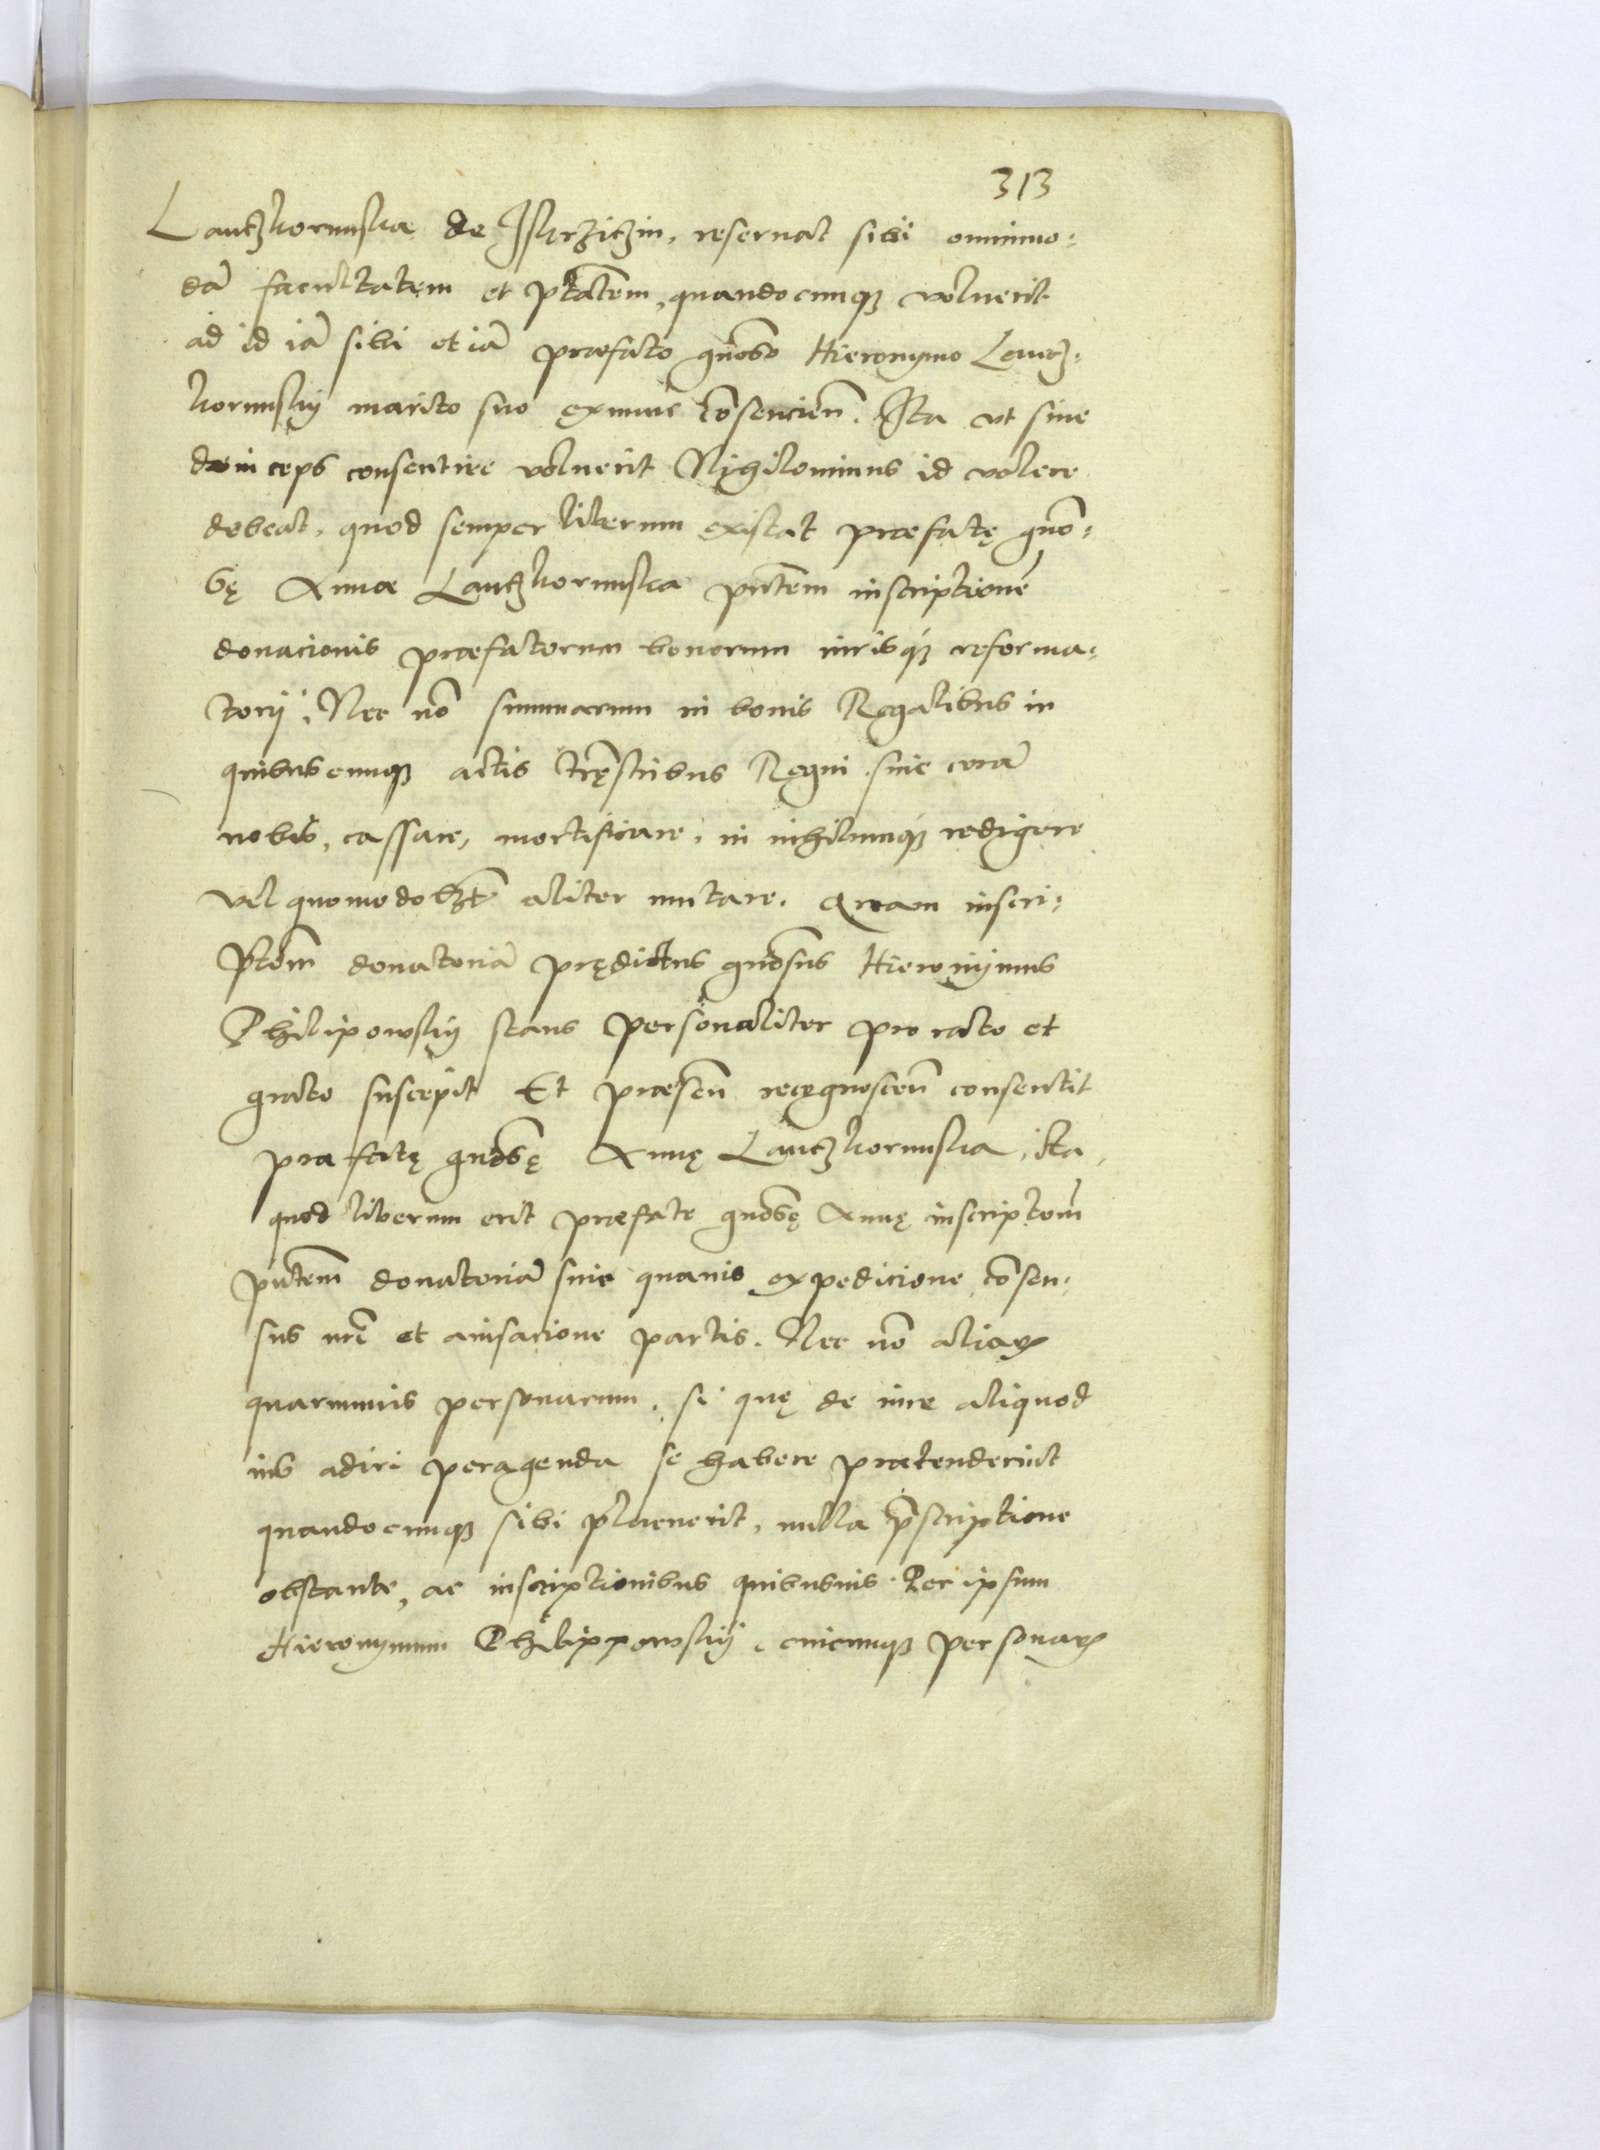 313
Lantzkorunska de Iskrzitzin, reseruat sibi omnimo:
dā facultatem et ptatem, quandocunqȝ voluerit
ad id iā sibi et iā præfato gnoso Hieronymo Lantz:
korunskÿ marito suo exnunc cōsencien̄. Ita vt siue
deinceps consentire voluerit Nihilominus id valere
debeat, quod semper liberum existat præfatę gno:
sę Annæ Lantzkorunska pntem inscriptionē
donacionis præfatorum bonorum iurisqȝ reforma:
torij, Nec nō summarum in bonis Regalibus in
quibuscunqȝ actis trr̄stribus Regni siue corā
nobis, cassare, mortificare, in nihilumqȝ redigere
vel quomodolȝt aliter mutare. Quam inscri:
ptōm donatoriā prędictus gnosus Hieronymus
Philipowskÿ stans personaliter pro rato et
grato suscepit Et præsen̄ recognoscen̄ consentit
præfatę gnosę Annę Lantzkorunska, ita
quod liberum erit præfate gnosę Annę inscriptōm
pntem donatoriā sine quauis expedicione cōsen:
sus nrī et auisacione partis. Nec nō aliarꝝ
quarumuis personarum, si quę de iure aliquod
ius adiri peragenda se habere prætenderint
quandocunqȝ sibi placuerit, nulla p̄scriptione
obstante, ac inscriptionibus quibusuis Per ipsum
Hieronymum Philippowskÿ, cuicunqȝ personarꝝ